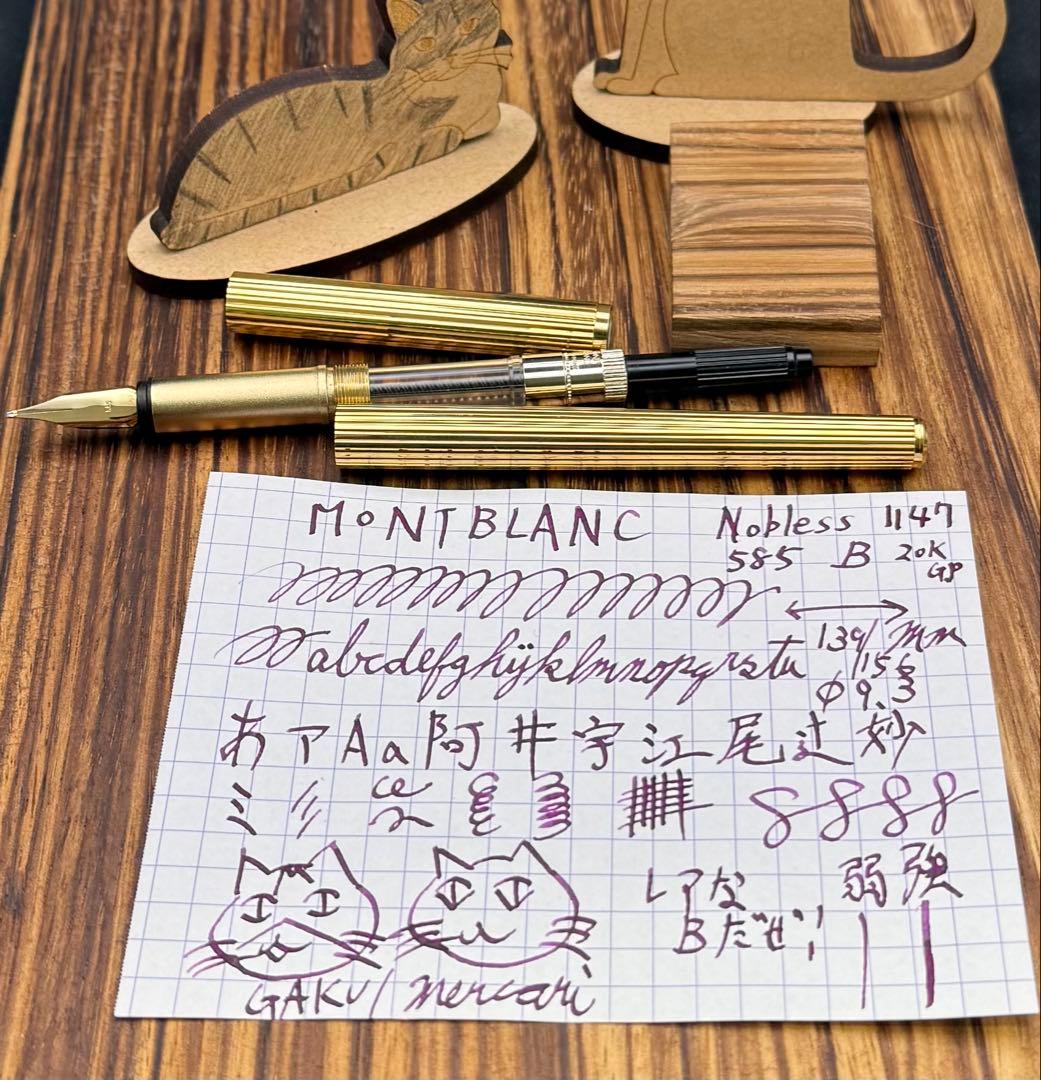 MONTBLANC
Nobless 1147
585 B 20K
GP
139/mm
/15g
φ9.3
abcdefghijklmnopqrstu
あアAa阿井宇江尾辻妙
レアな
Bだぜ!
弱 強
GAKU/mercari